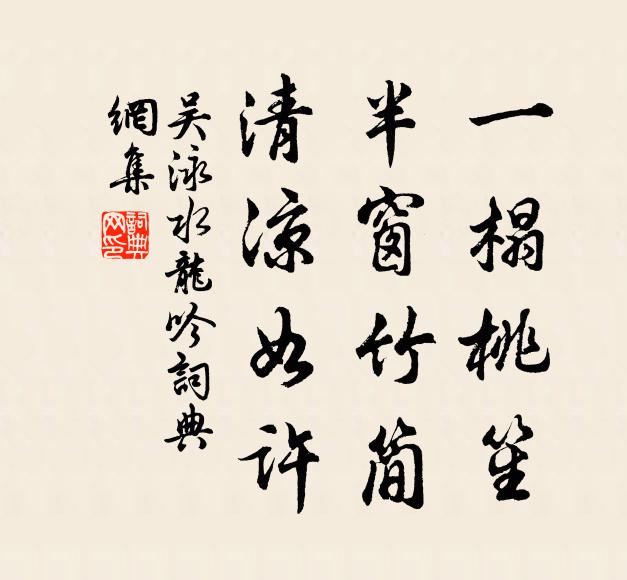 一榻桃笙
半窗竹简
清凉如许
吴泳水龍吟詞典
網集
詞典
网印